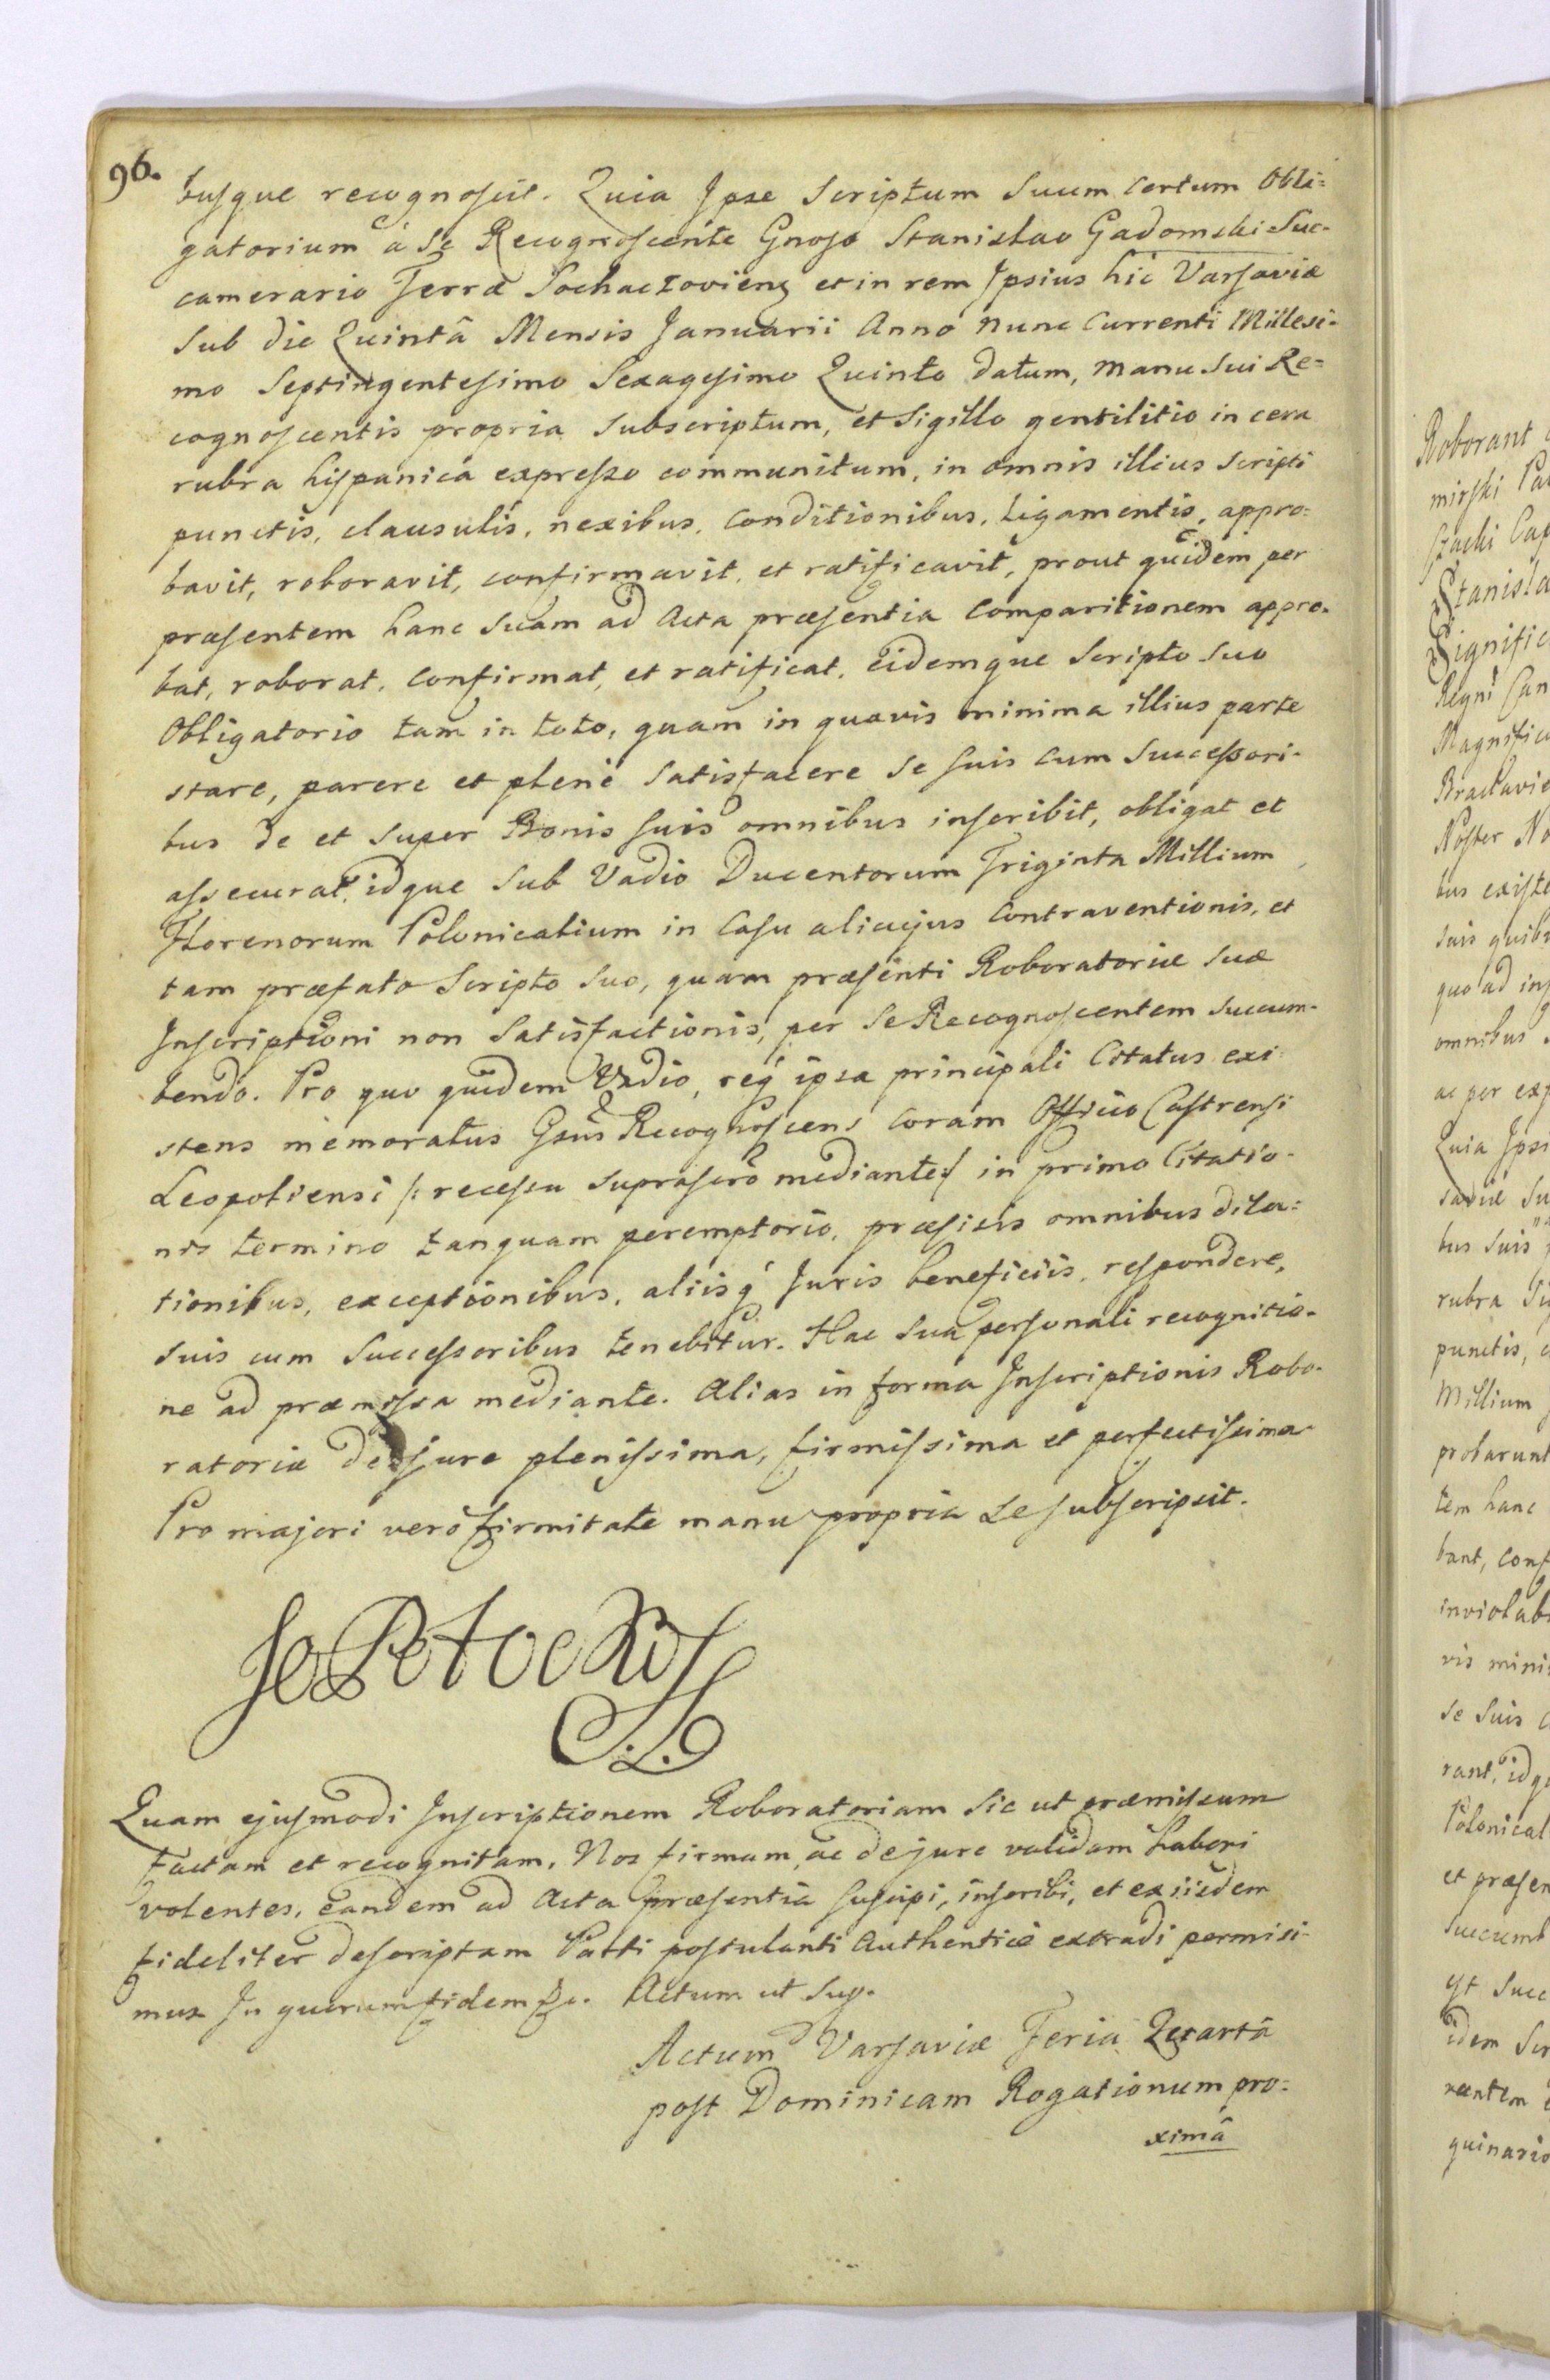 96.
busque recognoscit. Quia Ipse Scriptum Suum Certum Obli=
gatorium à Se Recognoscente Gnoso Stanislao Gadomski Suc-
camerario Terræ Sochaczovieng et in rem Ipsius hic Varsaviæ
sub die Quintâ Mensis Januarii Anno nunc Currenti Millesi-
mo Septingentesimo Sexagesimo Quinto datum, manu Sui Re=
cognoscentis propria subscriptum, et Sigillo gentilitio in cera
rubra hispanica expresso communitum, in omnis illius Scripti
punctis, clausulis, nexibus, Conditionibus, Ligamentis, appro=
bavit, roboravit, confirmavit, et ratificavit, prout quidem per
præsentem hanc Suam ad Acta præsentia Comparitionem appro-
bat, roborat, Confirmat, et ratificat, Eidemque Scripto Suo
Obligatorio tam in toto, quam in quavis minima illius parte
stare, parere et plenè Satisfacere Se Suis Cum Successori-
bus de et super Bonis Suis omnibus inscribit, obligat et
assecurat, idque Sub Vadio Ducentorum Triginta Millium
Florenorum Polonicalium in Casu alicujus Contraventionis, et
tam præfato Scripto Suo, quam præsenti Roboratoriæ Suæ
Inscriptioni non Satisfactionis, per Se Recognoscentem succum-
bendo. Pro quo quidem Vadio, req ipsa principali Citatus exi-
stens memoratus Gsus Recognoscens Coram Officio Castrensi
Leopoliensi /: recessu suprascrõ mediante :/ in primo Citatio-
nis termino tanquam peremptorio, præsisis omnibus dila=
tionibus, exceptionibus, aliisq́ Juris beneficiis, respondere,
Suis cum Successoribus tenebitur. Hac Sua personali recognitio-
ne ad præmissa mediante. Alias in forma Inscriptionis Robo-
ratoriæ de Jure plenissima, firmissima et perfectissima.
Pro majori verò firmitate manu propria Se subscripsit.
Potocki
Quam ejusmodi Inscriptionem Roboratoriam Sic ut præmissum
factam et recognitam, Nos firmam, ac de jure validam haberi
volentes, eandem ad Acta præsentia suscipi, inscribi, et ex iisdem
fideliter descriptam Parti postulanti Authenticè extradi permisi-
mus In quorum fidem &c. Actum ut Sup.
Actum Varsaviæ Feria Quartâ
post Dominicam Rogationum pro=
ximâ
Roborant
mirski
Stanisla
Signific
Regni Can
Magnific
Braclavie
Noster No
bus existe
suis quib
quo ad ins
omnibus
ac per exp
Quia Ipsi
saviæ Su
bus Suis
rubra Si
punctis, c
Millium
probarunt
tem hanc
bant, Conf
inviolab
vis mini
se Suis c
rant, idq
Polonical
et præsen
succumb
st Succ
idem Scr
quinario